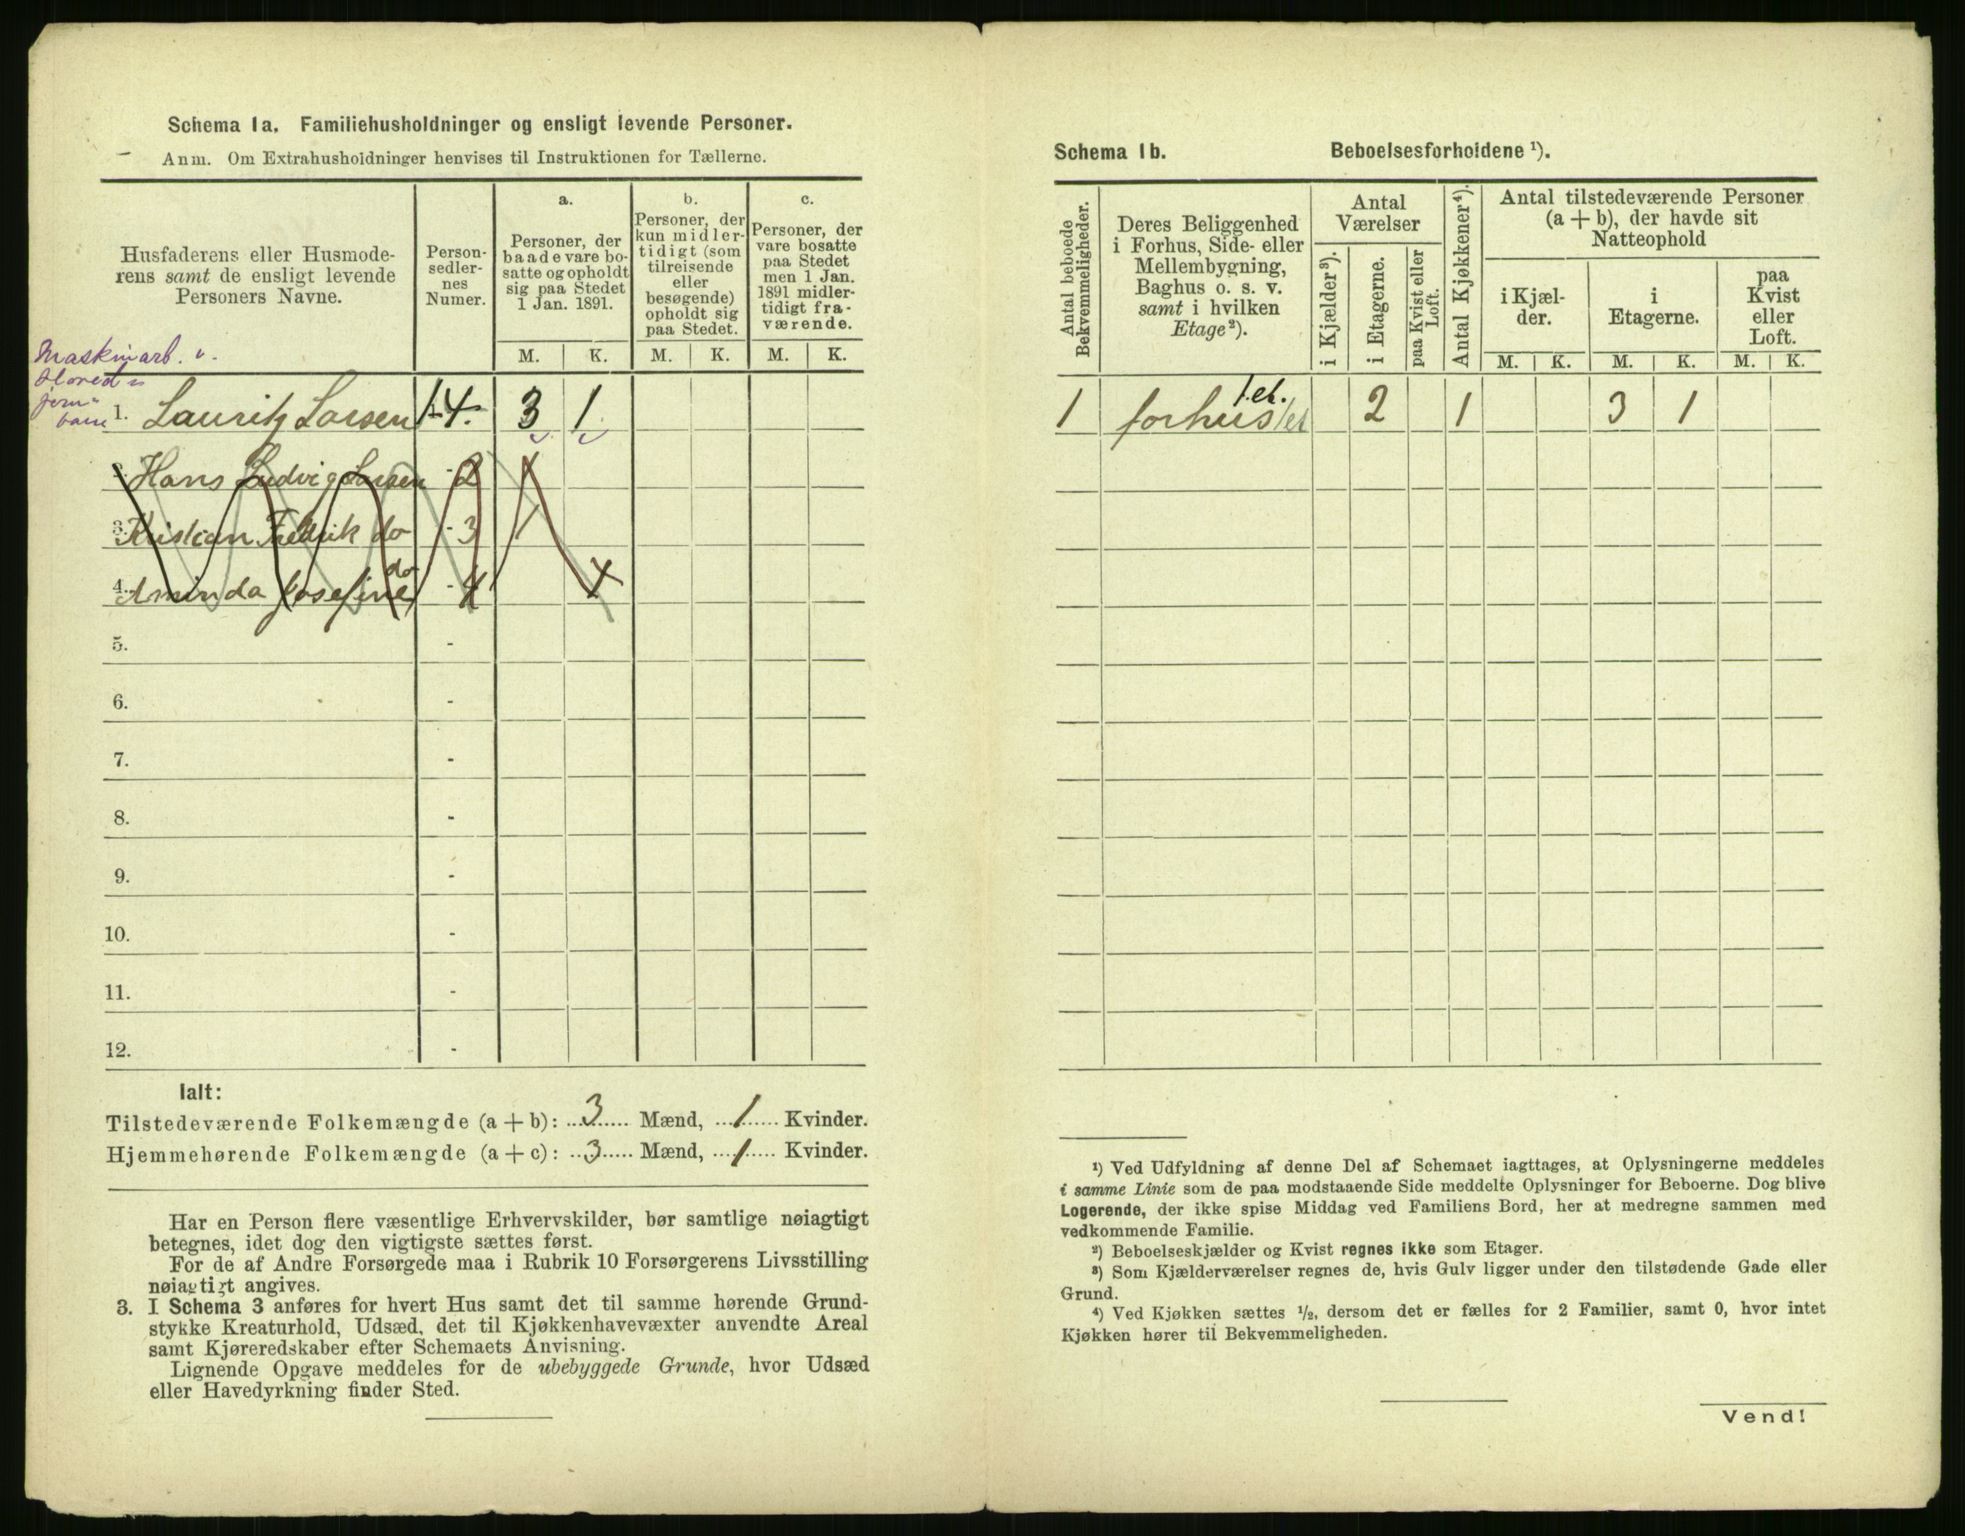 Schema 1a. Familiehusholdninger og ensligt levende Personer.
Anm. Om Extrahusholdninger henvises til Instruktionen for Tællerne.
Husfaderens eller Husmode-
rens samt de ensligt levende
Personers Navne.
Person-
sedler-
nes
Numer.
a.
Personer, der
baade vare bo-
satte og opholdt
sig paa Stedet
1 Jan. 1891.
b.
Personer, der
kun midler-
tidigt (som
tilreisende
eller
besøgende)
opholdt sig
paa Stedet.
c.
Personer, der
vare bosatte
paa Stedet
men 1 Jan.
1891 midler-
tidigt fra-
værende.
M. K. M. K. M. K.
Maskinarb. v.
Hoved
jern
bane
1. Lauritz Larsen 1-4. 3 1
2. Hans Ludvig Larsen - 2 1
3. Kristian Fredrik do - 3 1
4. Aminda Josefine do - 4 1
5. -
6. -
7. -
8. -
9. -
10. -
11. -
12. -
Ialt:
Tilstedeværende Folkemængde (a + b): 3 Mænd, 1 Kvinder.
Hjemmehørende Folkemængde (a + c): 3 Mænd, 1 Kvinder.
Har en Person flere væsentlige Erhvervskilder, bør samtlige nøiagtigt
betegnes, idet dog den vigtigste sættes først.
For de af Andre Forsørgede maa i Rubrik 10 Forsørgerens Livsstilling
nøiagtigt angives.
3. I Schema 3 anføres for hvert Hus samt det til samme hørende Grund-
stykke Kreaturhold, Udsæd, det til Kjøkkenhavevæxter anvendte Areal
samt Kjøreredskaber efter Schemaets Anvisning.
Lignende Opgave meddeles for de ubebyggede Grunde, hvor Udsæd
eller Havedyrkning finder Sted.
Schema 1b. Beboelsesforholdene ¹).
Antal beboede
Bekvemmeligheder.
Deres Beliggenhed
i Forhus, Side- eller
Mellembygning,
Baghus o. s. v.
samt i hvilken
Etage ²).
Antal
Værelser
i Kjælder ³).
i Etagerne.
paa Kvist eller
Loft.
Antal Kjøkkener ⁴).
Antal tilstedeværende Personer
(a + b), der havde sit
Natteophold
i Kjæl-
der.
i
Etagerne.
paa
Kvist
eller
Loft.
M. K. M. K. M. K.
1 et.
1 forhus 1 et 2 1 3 1
¹) Ved Udfyldning af denne Del af Schemaet iagttages, at Oplysningerne meddeles
i samme Linie som de paa modstaaende Side meddelte Oplysninger for Beboerne. Dog blive
Logerende, der ikke spise Middag ved Familiens Bord, her at medregne sammen med
vedkommende Familie.
²) Beboelseskjælder og Kvist regnes ikke som Etager.
³) Som Kjælderværelser regnes de, hvis Gulv ligger under den tilstødende Gade eller
Grund.
⁴) Ved Kjøkken sættes ½, dersom det er fælles for 2 Familier, samt 0, hvor intet
Kjøkken hører til Bekvemmeligheden.
Vend!